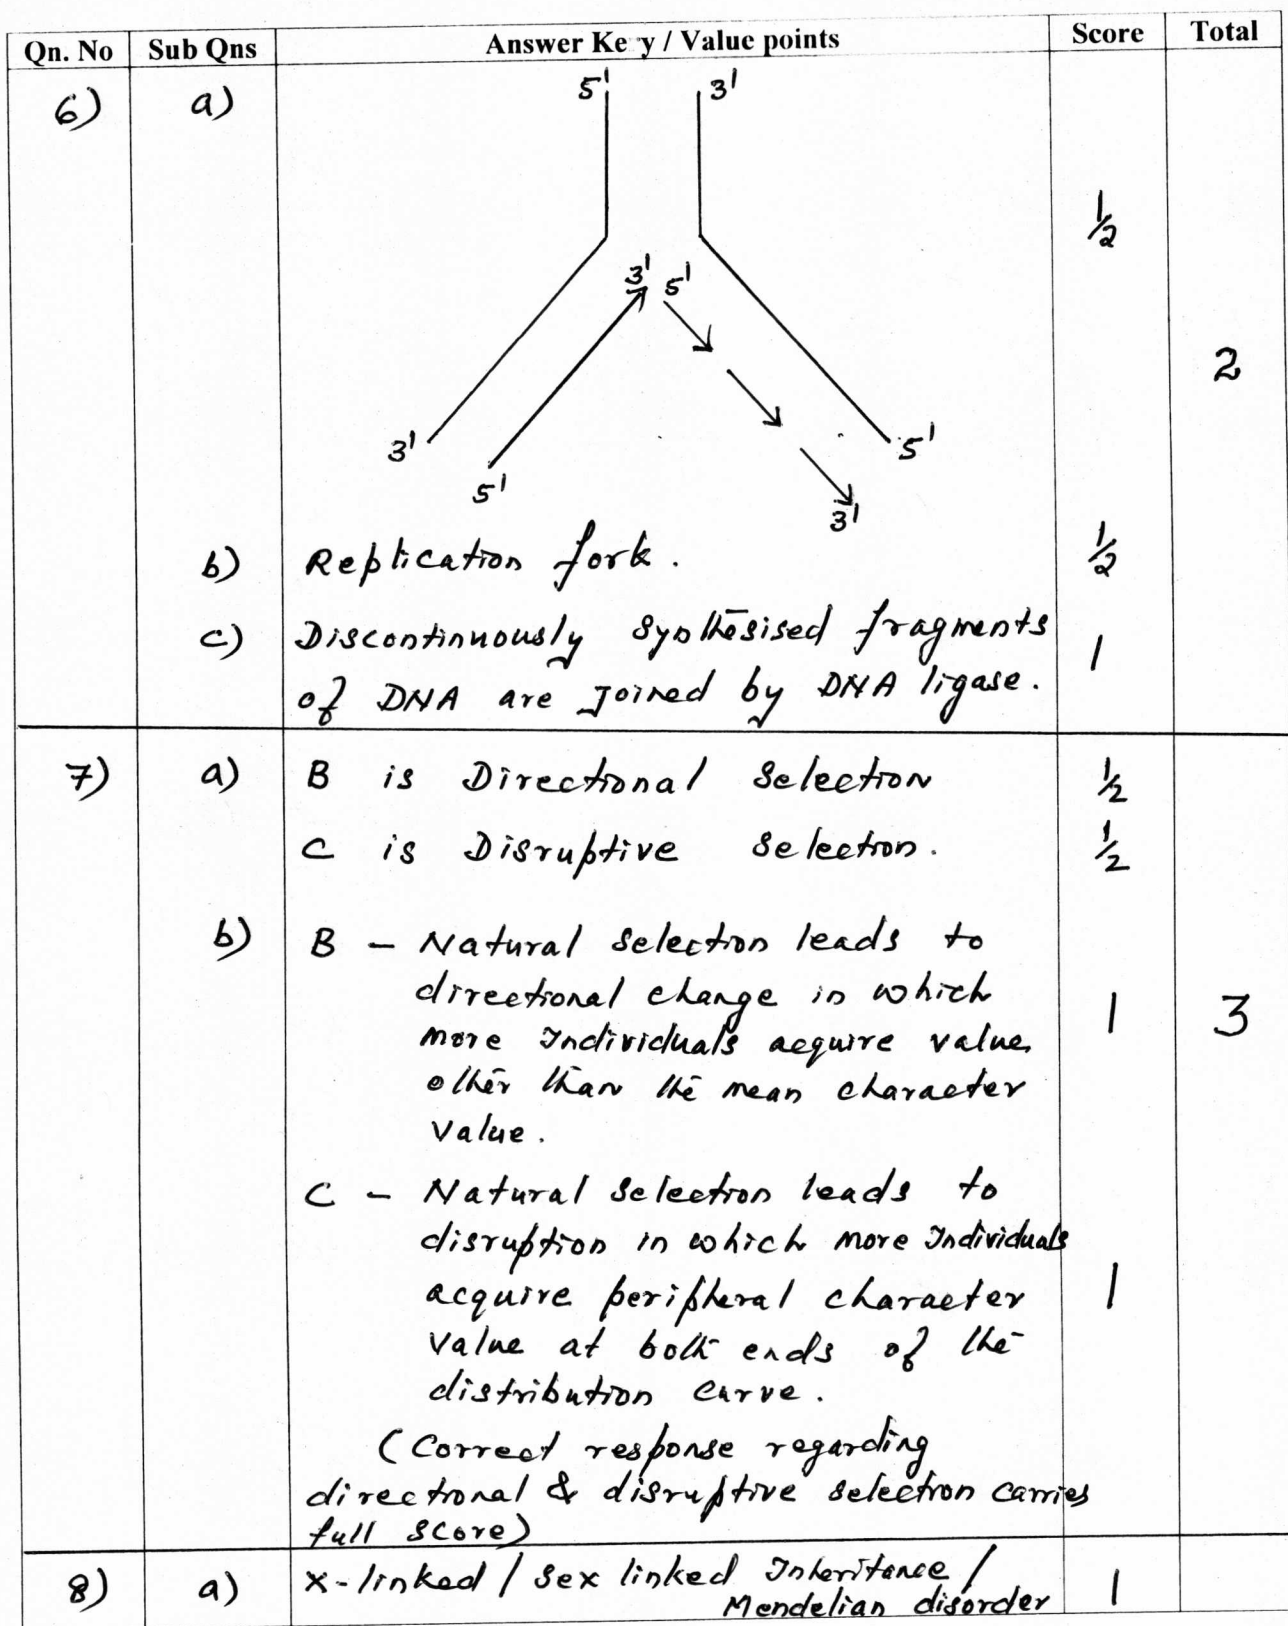 Qn. No Sub Qns Answer Ke y / Value points Score Total
6) a)
5' 3'
1/2
3' 5'
2
3' 5'
5' 3'
b) Replication fork. 1/2
c) Discontinuously synthesised fragments 1
of DNA are joined by DNA ligase.
7) a) B is Directional Selection 1/2
C is Disruptive Selection. 1/2
b) B - Natural selection leads to
directional change in which 1 3
more Individuals acquire value
other than the mean character
value.
C - Natural Selection leads to
disruption in which more Individuals
acquire peripheral character 1
value at both ends of the
distribution curve.
(Correct response regarding
directional & disruptive selection carries
full score)
8) a) X-linked / Sex linked Inheritance / 1
Mendelian disorder